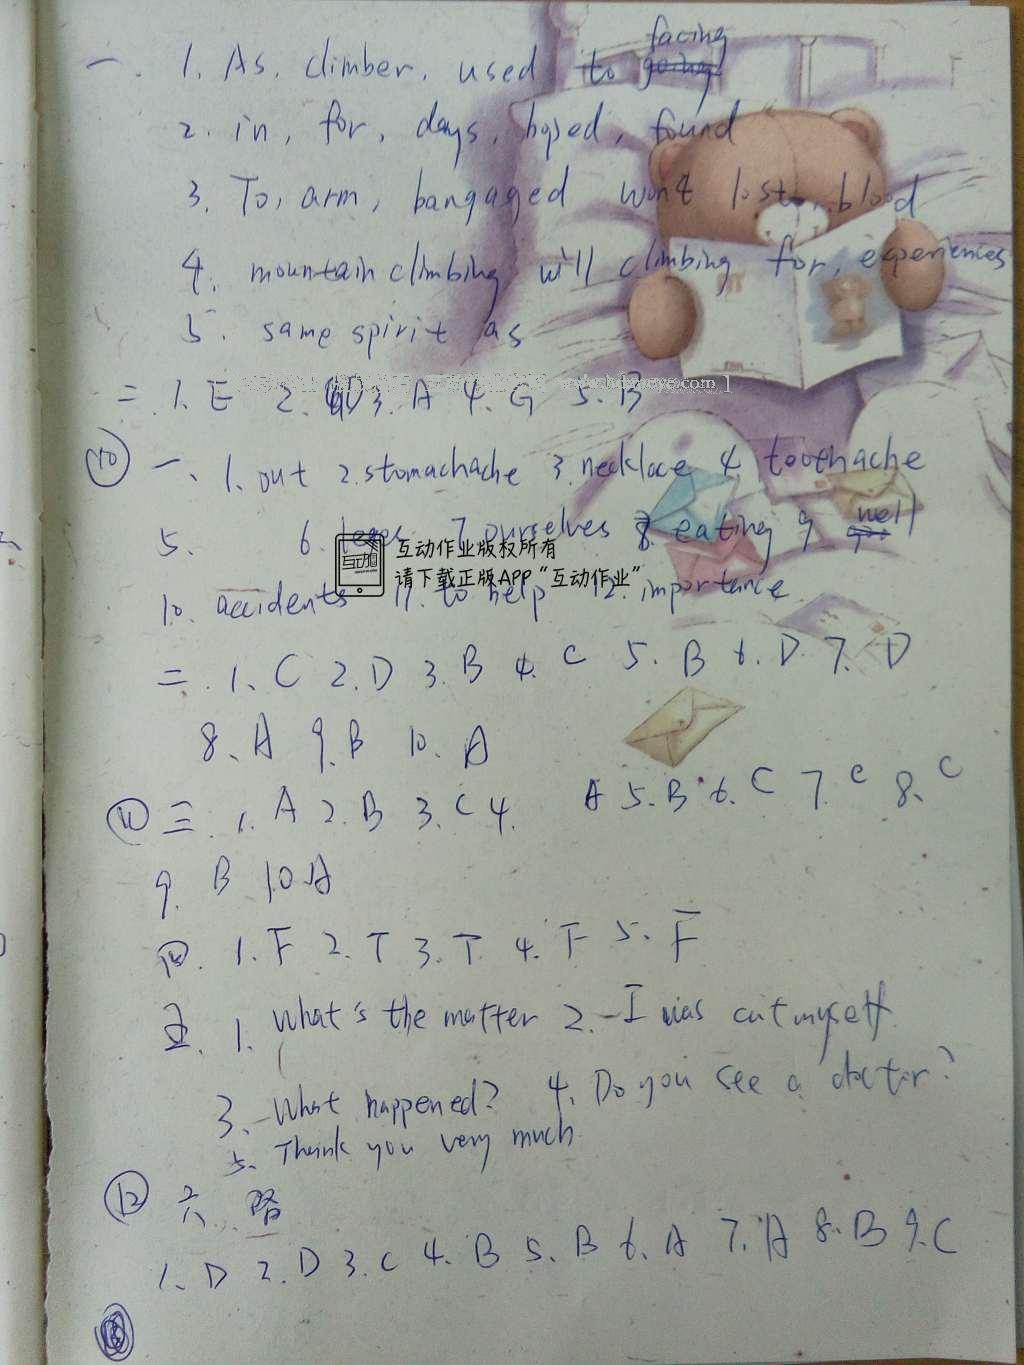 facing
一. 1. As, climber, used to going
2. in, for, days, based, found
3. To, arm, bangaged won't lost, blood
4. mountain climbing will climbing for, experiences
5. same spirit as
二. 1. E 2. D 3. A 4. G 5. B
⑩ 一、1. out 2. stomachache 3. necklace 4. toothache
5. 6. 7. ourselves 8. eating 9. well
互动作业版权所有
互动
请下载正版APP“互动作业”
10. accidents 11. to help 12. importance
二. 1. C 2. D 3. B 4. C 5. B 6. D 7. D
8. A 9. B 10. A
⑪ 三. 1. A 2. B 3. C 4. A 5. B 6. C 7. C 8. C
9. B 10. A
四. 1. F 2. T 3. T 4. F 5. F
五. 1. What's the matter 2. I was cut myself
3. What happened? 4. Do you see a doctor?
5. Think you very much
⑫ 六. 略
1. D 2. D 3. C 4. B 5. B 6. A 7. A 8. B 9. C